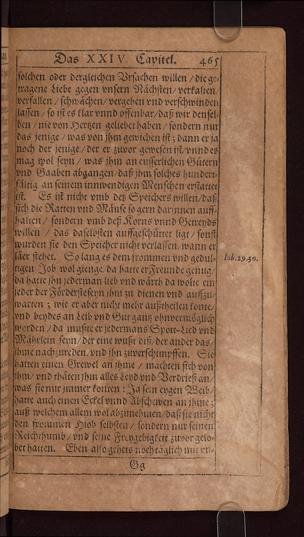 Das XXIV. Capitel. 465
solchen oder dergleichen Ursachen willen / die ge-
tragene Liebe gegen unsern Nächsten / verkalten
verfallen / schwächen / vergehen und verschwinden
lassen / so ist es klar unnd offenbar / daß wir densel-
ben / nie von Hertzen geliebet haben / sondern nur
das jenige / was von ihm gewichen ist; dann er ja
noch der jenige / der er zuvor gewesen ist / unnd es
mag wol seyn / was ihm an eusserlichen Gütern
und Gaaben abgangen / daß ihm solches hundert-
fältig an seinem innwendigen Menschen erstattet
ist. Es ist nicht umb des Speichers willen / daß
sich die Ratten und Mäuse so gern darinnen auff-
halten / sondern umb deß Korns unnd Getreyds
willen / das daselbsten auffgeschüttet ligt / sonst
würden sie den Speicher nicht verlassen / wann er
lär stehet. So lang es dem frommen und gedul-
tigen Job wol gienge / da hatte er Freunde genug /
da hatte ihn jederman lieb und wärth / da wolte ein
jeder der Förderste seyn ihm zu dienen und auffzu-
warten; wie er aber nicht mehr außtheilen konte /
und beydes an Leib und Gut gantz ohnvermöglich
worden / da muste er jedermans Spott-Lied und
Mährlein seyn / der eine wust diß / der ander das /
ihme nachzureden und ihn zuverschimpffen. Sie
hatten einen Grewel an ihme / machten sich von
ihm / und thäten ihm alles Leyd und Verdrieß an /
was sie nur immer konten: Ja sein eygen Weib /
hatte auch einen Eckel unnd Abschewen an ihme;
auß welchem allem wol abzunehmen / daß sie nicht
den frommen Hiob selbsten / sondern nur seinen
Reichthumb / und seine Freygebigkeit zuvor gelo-
bet hatten. Eben also gehets noch täglich mit
Gg
Iob. 29. 30.